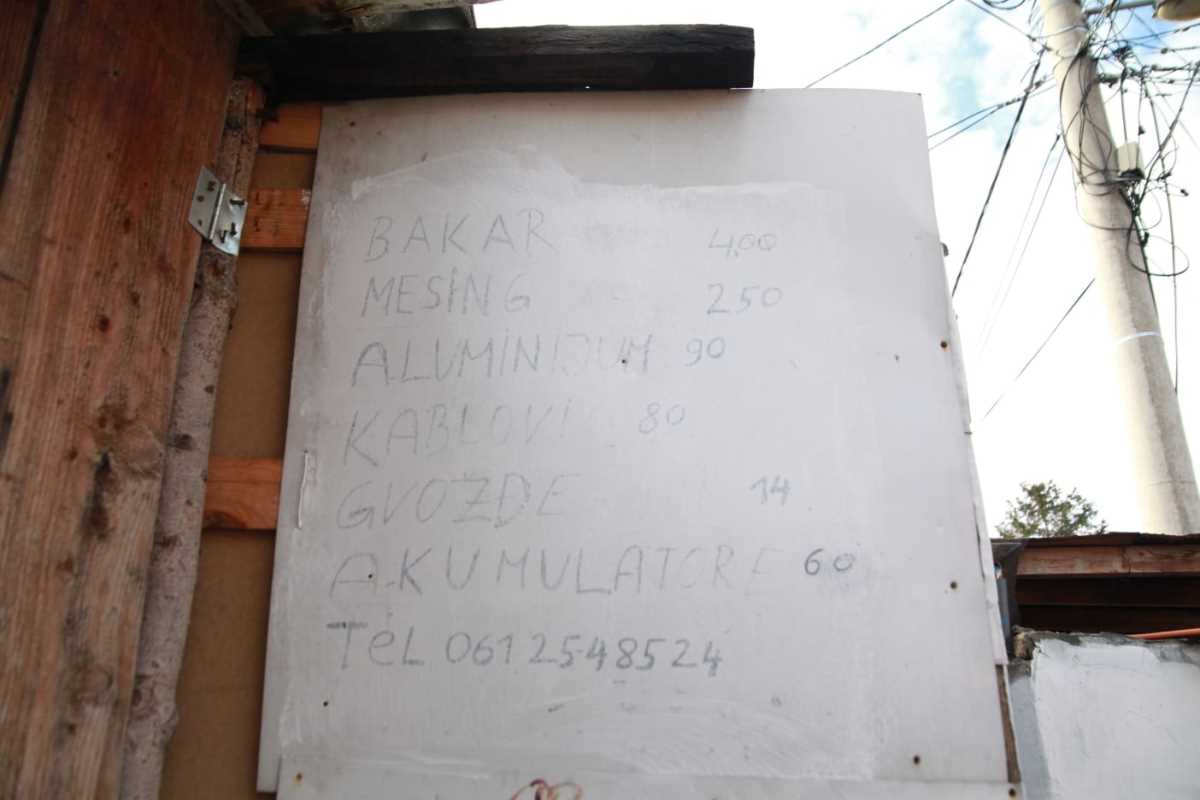 BAKAR 400
MESING 250
ALUMINIJUM 90
KABLOVI 80
GVOZDE 14
AKUMULATORE 60
TeL 0612548524